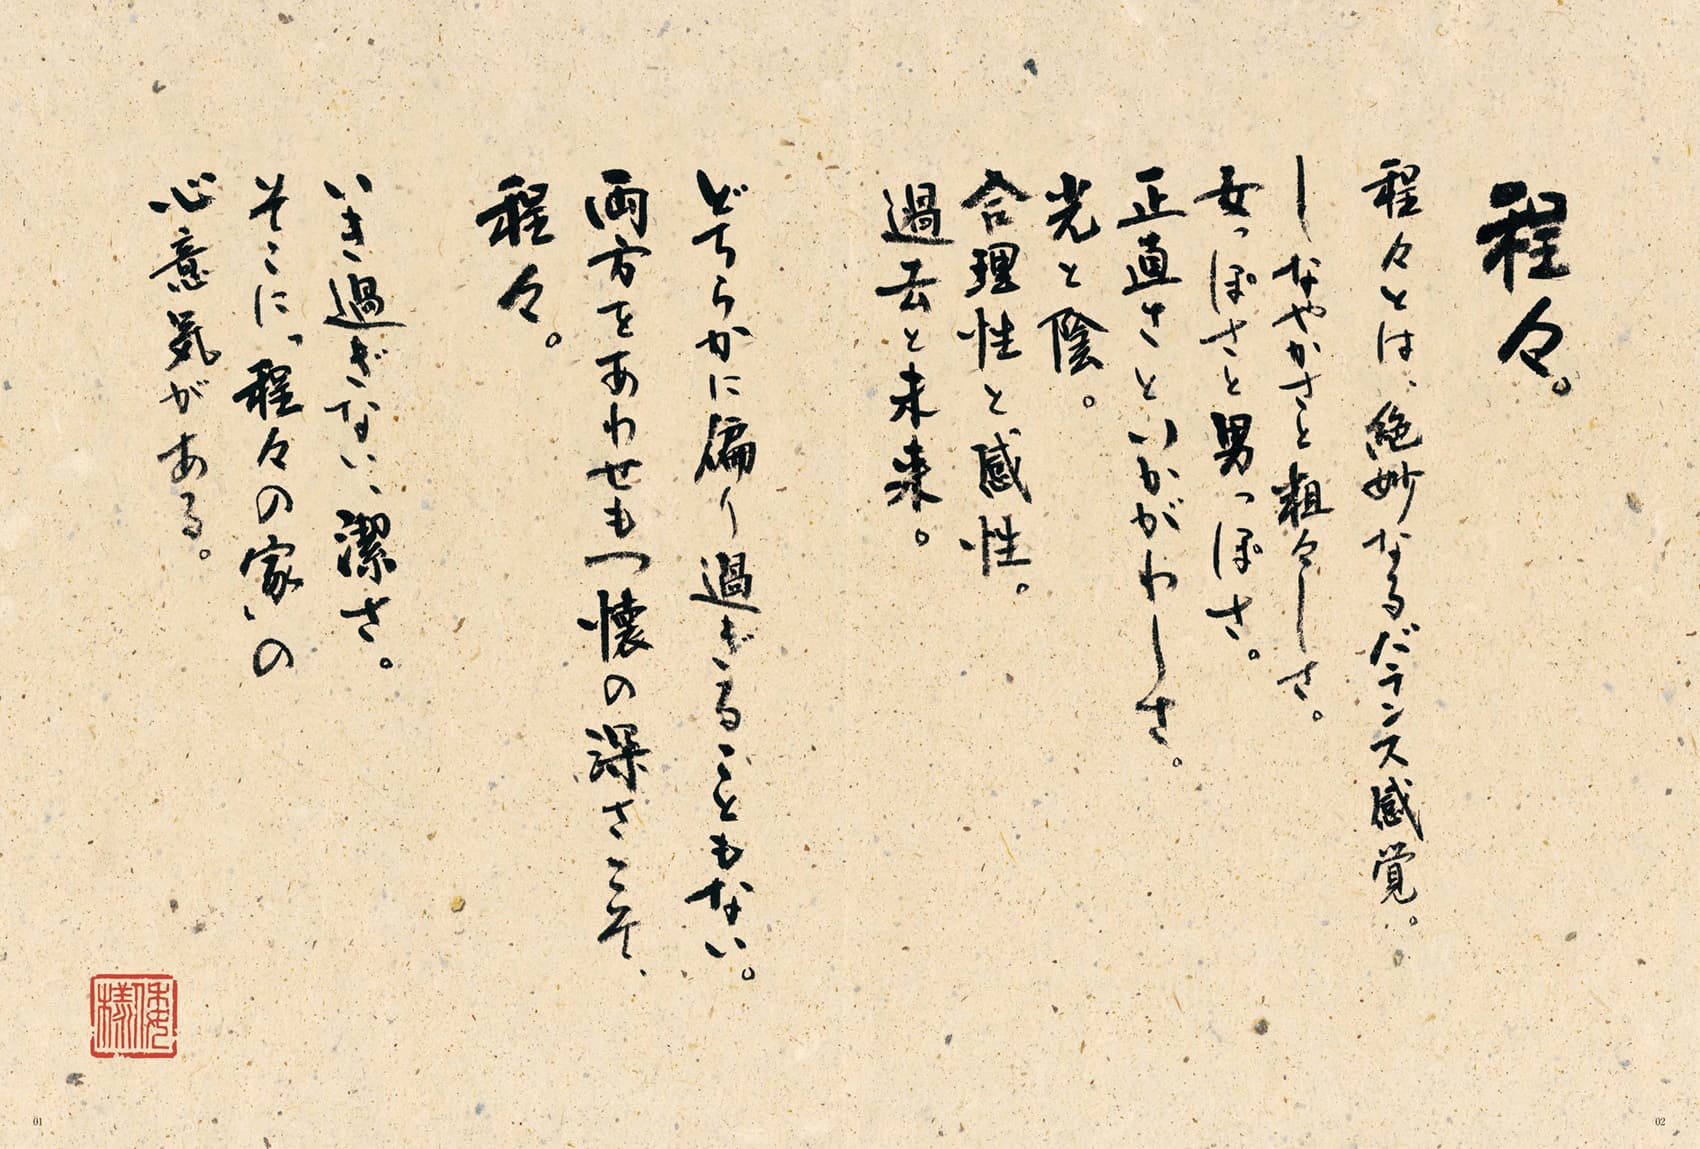 程々。
程々とは、絶妙なるバランス感覚。
しなやかさと粗々しさ。
女っぽさと男っぽさ。
正直さといかがわしさ。
光と陰。
合理性と感性。
過去と未来。
どちらかに偏り過ぎることもない。
両方をあわせもつ懐の深さこそ、
程々。
いき過ぎない、潔さ。
そこに、“程々の家”の
心意気がある。
倭様
01
02